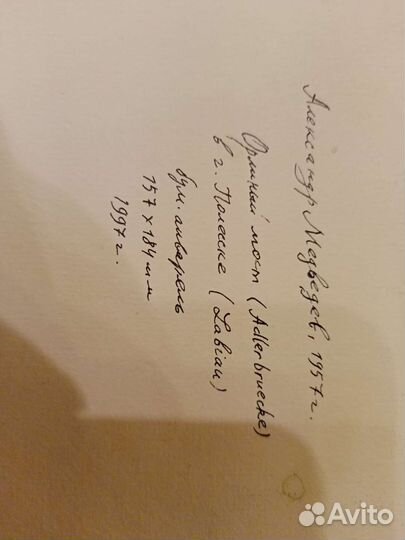 Александр Медведев, 1957г.
Орлиный мост (Adlerbruecke)
в г. Полесске (Labiau)
бум. акварель
157 х 184 мм
1997г.
Avito